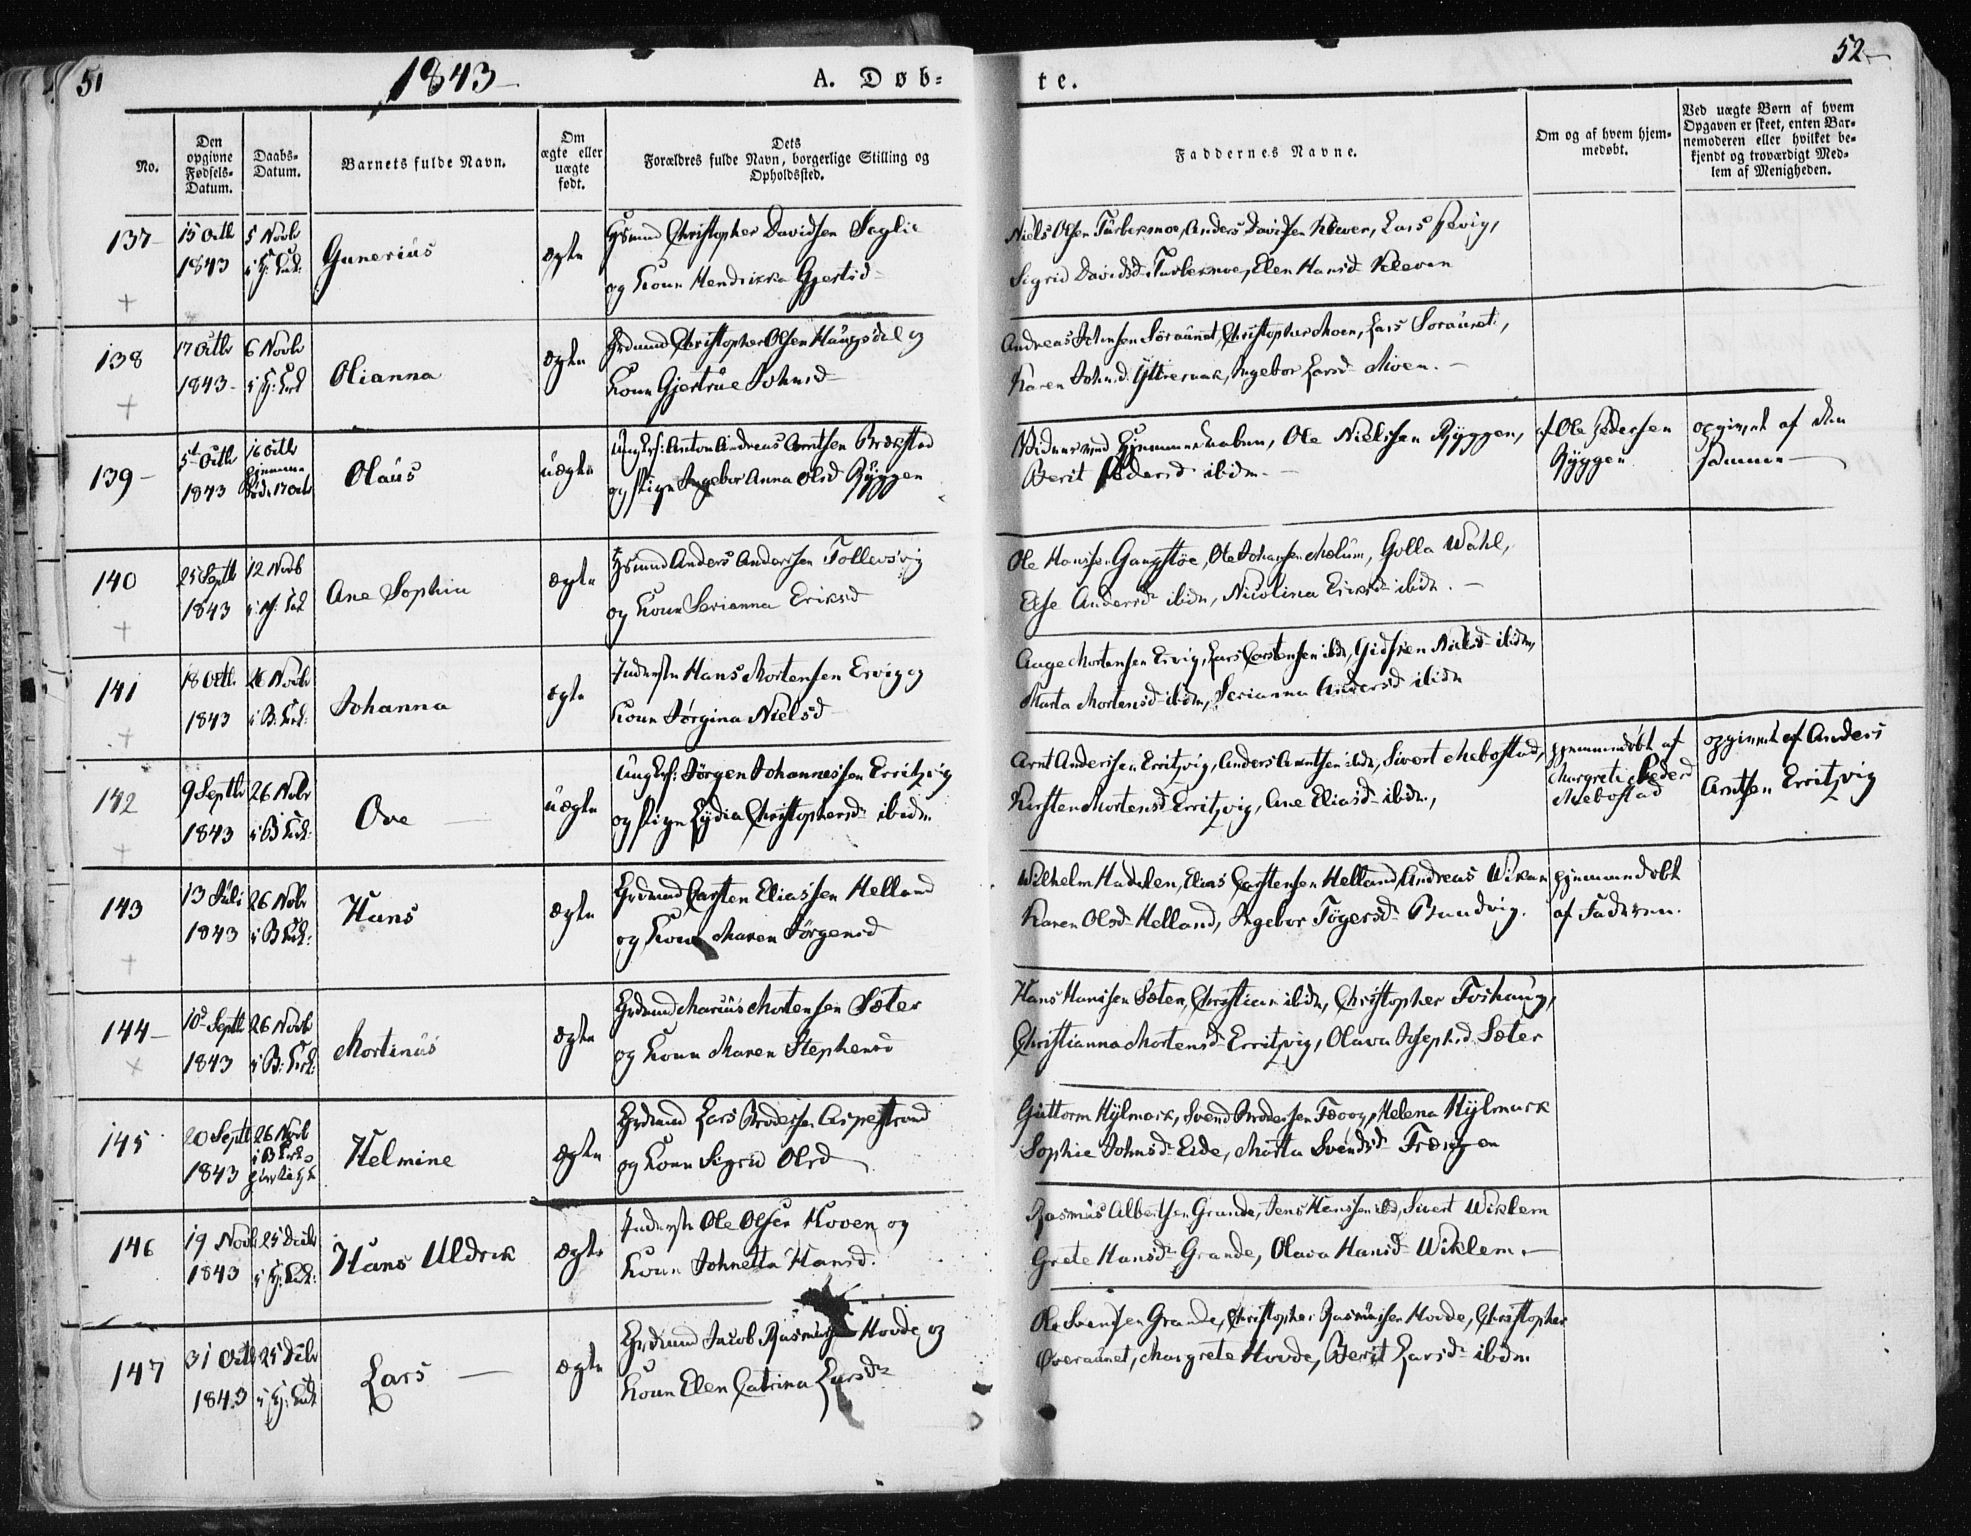 51
1843
A. Døb-
te.
52
No.
Den opgivne Fødsels-Datum.
Daabs-Datum.
Barnets fulde Navn.
Om ægte eller uægte født.
Dets Forældres fulde Navn, borgerlige Stilling og Opholdssted.
Faddernes Navne.
Om og af hvem hjem-medøbt.
Ved uægte Børn af hvem Opgaven er skeet, enten Bar-nemoderen eller hvilket be-kjendt og troværdigt Med-lem af Menigheden.
137
15 Octb 5 Novbr
1843
Gunerius
ægte
Christopher Davidsen
og Kone Hendrikka Gjertsd
Niels Olsen Anders Davidsen Lars
Sigrid Davidsd Elen Hansd
138
17 Octbr 6 Novbr
1843
Olianna
ægte
Christopher Olsen Haugsdal og
Kone Gjertrue Johnsd
Andreas Johnsen Søraunet, Christopher Moen, Lars Søraunet,
Karen Johnsd Ingebor Larsd Moen.
139
5t Octbr 16 Octbr
1843
Olaus
uægte
Ungkf: Anton Andreas Arntsen
og Pigen Ingebor Anna Olsd Ryggen
Ole Nielssen Ryggen,
Berit Pedersd ibidm.
af Ole Pedersen
Ryggen
opgivet af den
samme
140
25 Septb 12 Novb
1843
Ane Sophia
ægte
Anders Anderssen Tollevsvig
og Kone Serianna Eriksd
Ole Hanssen Ole Johansen Golla Wahl,
Else Andersd ibidm, Nicolina Eriksd ibidm.
141
18 Octb. Novbr
1843 i B: Kirk:
Johanna
ægte
Inderste Hans Mortensen Ervig og
Kone Jørgina Nielsd
Aage Mortensen Ervig, Lars Carstensen ibdm, Nielsd ibidm,
Marta Mortensd ibidm, Serianna Andersd ibidm
142
9 Septbr 26 Nobr
1843 i B Kirk:
Ove
uægte
Ungkf: Jørgen Johannessen Erritzvig
og Pigen Lydia Christophersd ibidm.
Arnt Anderssen Erritzvig, Anders Arntsen ibdm, Sivert Mebostad,
Kirsten Mortensd Erritzvig, Ane Eliasd ibidm,
hjemmedøbt af
Margrete Pedersd
Mebostad
opgivet af Anders
Arntsen Erritzvig
143
13 Juli 26 Nobr
1843 i B Kirk:
Hans
ægte
Grdmand Carsten Eliassen Helland
og Kone Maren Jørgensd
Wilhelm Hadelen, Elias Carstensen Helland, Andreas
Karen Olsd Helland, Ingebor
hjemmedøbt
af Faderen.
144
10d Septb 26 Novb
1843 i B: Kirk:
Mortinus
ægte
Grdmand Marius Mortensen Sæter
og Kone Maren Stephensd
Hans Hansen Sæter, Christian ibidm, Christopher Foshaug,
Christianna Mortensd Erritzvig, Olava Josephsd Sæter
145
20 Septb 26 Novb
1843
Helmine
ægte
Grdmand Lars Brodersen Aspestrand
og Kone Sigrid Olsd
Guttorm Hylmark, Svend Brodersen Helena Hylmark
Sophie Johnsd Eide, Marta Svendsd
146
19 Novb 25 Decbr
1843
Hans Uldrik
ægte
Inderste Ole Olsen Hoven og
Kone Johnetta Hansd.
Rasmus Albertsen Grande, Jens Hanssen ibd, Sivert Wiklem
Grete Hansd Grande, Olava Hansd Wiklem
147
31 Octb 25 Decbr
1843
Lars
ægte
Grdmand Jacob Rasmussen Hovde og
Kone Elen Catrina Larsdr
Ole Svensen Grande, Christopher Rasmussen Hovde, Christopher
Overaunet, Margrete Hovde, Berit Larsd ibidm.